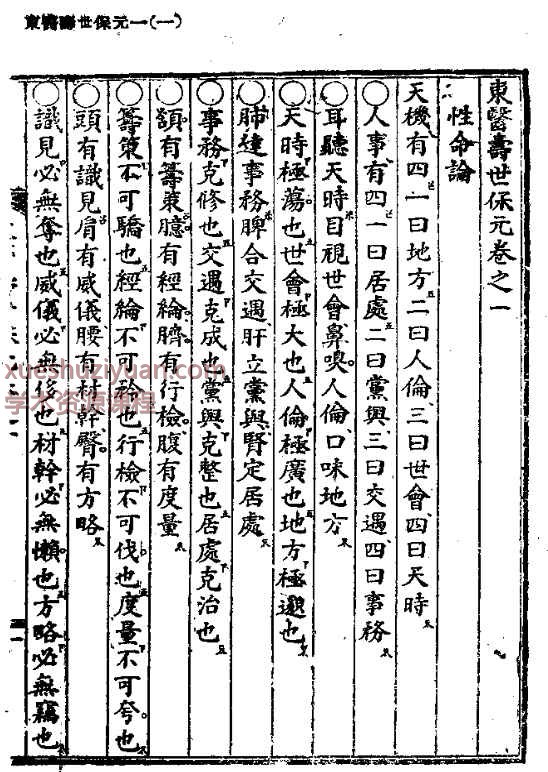 東醫壽世保元一(一)
東醫壽世保元卷之一
性命論
天機有四一曰地方二曰人倫三曰世會四曰天時
○人事有四一曰居處二曰黨與三曰交遇四曰事務
○耳聽天時目視世會鼻嗅人倫口味地方
○天時極蕩也世會極大也人倫極廣也地方極邈也
○肺達事務脾合交遇肝立黨與腎定居處
○事務克修也交遇克成也黨與克整也居處克治也
○頷有籌策臆有經綸臍有行檢腹有度量
○籌策不可驕也經綸不可矜也行檢不可伐也度量不可夸也
○頭有識見肩有威儀腰有材幹臀有方略
○識見必無奪也威儀必無侈也材幹必無懶也方略必無竊也
xueshuziyuan.com
学术资源课程